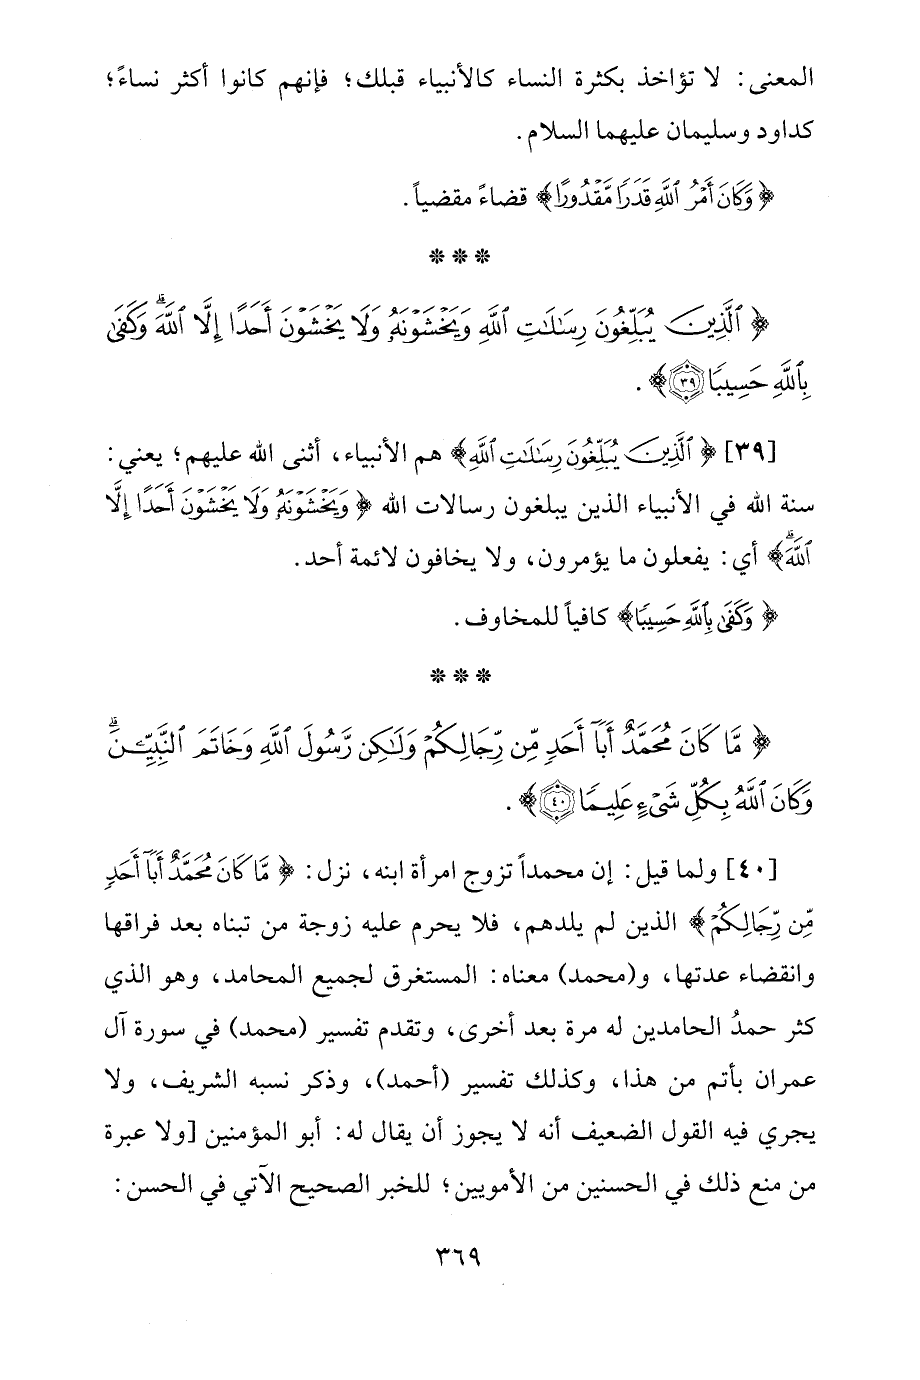 المعنى: لا تؤاخذ بكثرة النساء كالأنبياء قبلك؛ فإنهم كانوا أكثر نساءً؛
كداود وسليمان عليهما السلام.
﴿وَكَانَ أَمْرُ ٱللَّهِ قَدَرًا مَّقْدُورًا﴾ قضاءً مقضياً.
* * *
﴿ٱلَّذِينَ يُبَلِّغُونَ رِسَٰلَٰتِ ٱللَّهِ وَيَخْشَوْنَهُۥ وَلَا يَخْشَوْنَ أَحَدًا إِلَّا ٱللَّهَ ۗ وَكَفَىٰ
بِٱللَّهِ حَسِيبًا ٣٩﴾.
[٣٩] ﴿ٱلَّذِينَ يُبَلِّغُونَ رِسَٰلَٰتِ ٱللَّهِ﴾ هم الأنبياء، أثنى الله عليهم؛ يعني:
سنة الله في الأنبياء الذين يبلغون رسالات الله ﴿وَيَخْشَوْنَهُۥ وَلَا يَخْشَوْنَ أَحَدًا إِلَّا
ٱللَّهَ ۗ﴾ أي: يفعلون ما يؤمرون، ولا يخافون لائمة أحد.
﴿وَكَفَىٰ بِٱللَّهِ حَسِيبًا﴾ كافياً للمخاوف.
* * *
﴿مَّا كَانَ مُحَمَّدٌ أَبَآ أَحَدٍ مِّن رِّجَالِكُمْ وَلَٰكِن رَّسُولَ ٱللَّهِ وَخَاتَمَ ٱلنَّبِيِّـۧنَ ۗ
وَكَانَ ٱللَّهُ بِكُلِّ شَىْءٍ عَلِيمًا ٤٠﴾.
[٤٠] ولما قيل: إن محمداً تزوج امرأة ابنه، نزل: ﴿مَّا كَانَ مُحَمَّدٌ أَبَآ أَحَدٍ
مِّن رِّجَالِكُمْ﴾ الذين لم يلدهم، فلا يحرم عليه زوجة من تبناه بعد فراقها
وانقضاء عدتها، و(محمد) معناه: المستغرق لجميع المحامد، وهو الذي
كثر حمدُ الحامدين له مرة بعد أخرى، وتقدم تفسير (محمد) في سورة آل
عمران بأتم من هذا، وكذلك تفسير (أحمد)، وذكر نسبه الشريف، ولا
يجري فيه القول الضعيف أنه لا يجوز أن يقال له: أبو المؤمنين [ولا عبرة
من منع ذلك في الحسنين من الأمويين؛ للخبر الصحيح الآتي في الحسن:
٣٦٩